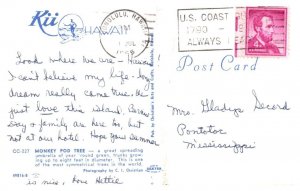 Kii
HAWAII
HONOLULU, HAWAII
JUL
U.S. COAST
1790-
ALWAYS
Post Card
Look where we are - Hawaii
I can't believe my life - my
dream really came true. We
just love this island. Carol
Day & family are here too, but
not at our hotel. Hope your summer
is nice. Love Hettie
Mrs. Gladys Secord
Pontotoc
Mississippi
CC-227 MONKEY POD TREE - a great spreading
umbrella of your round green, trunks grow-
ing up to eight feet in diameter. This is one of
the most symmetrical trees in the world.
Photography by